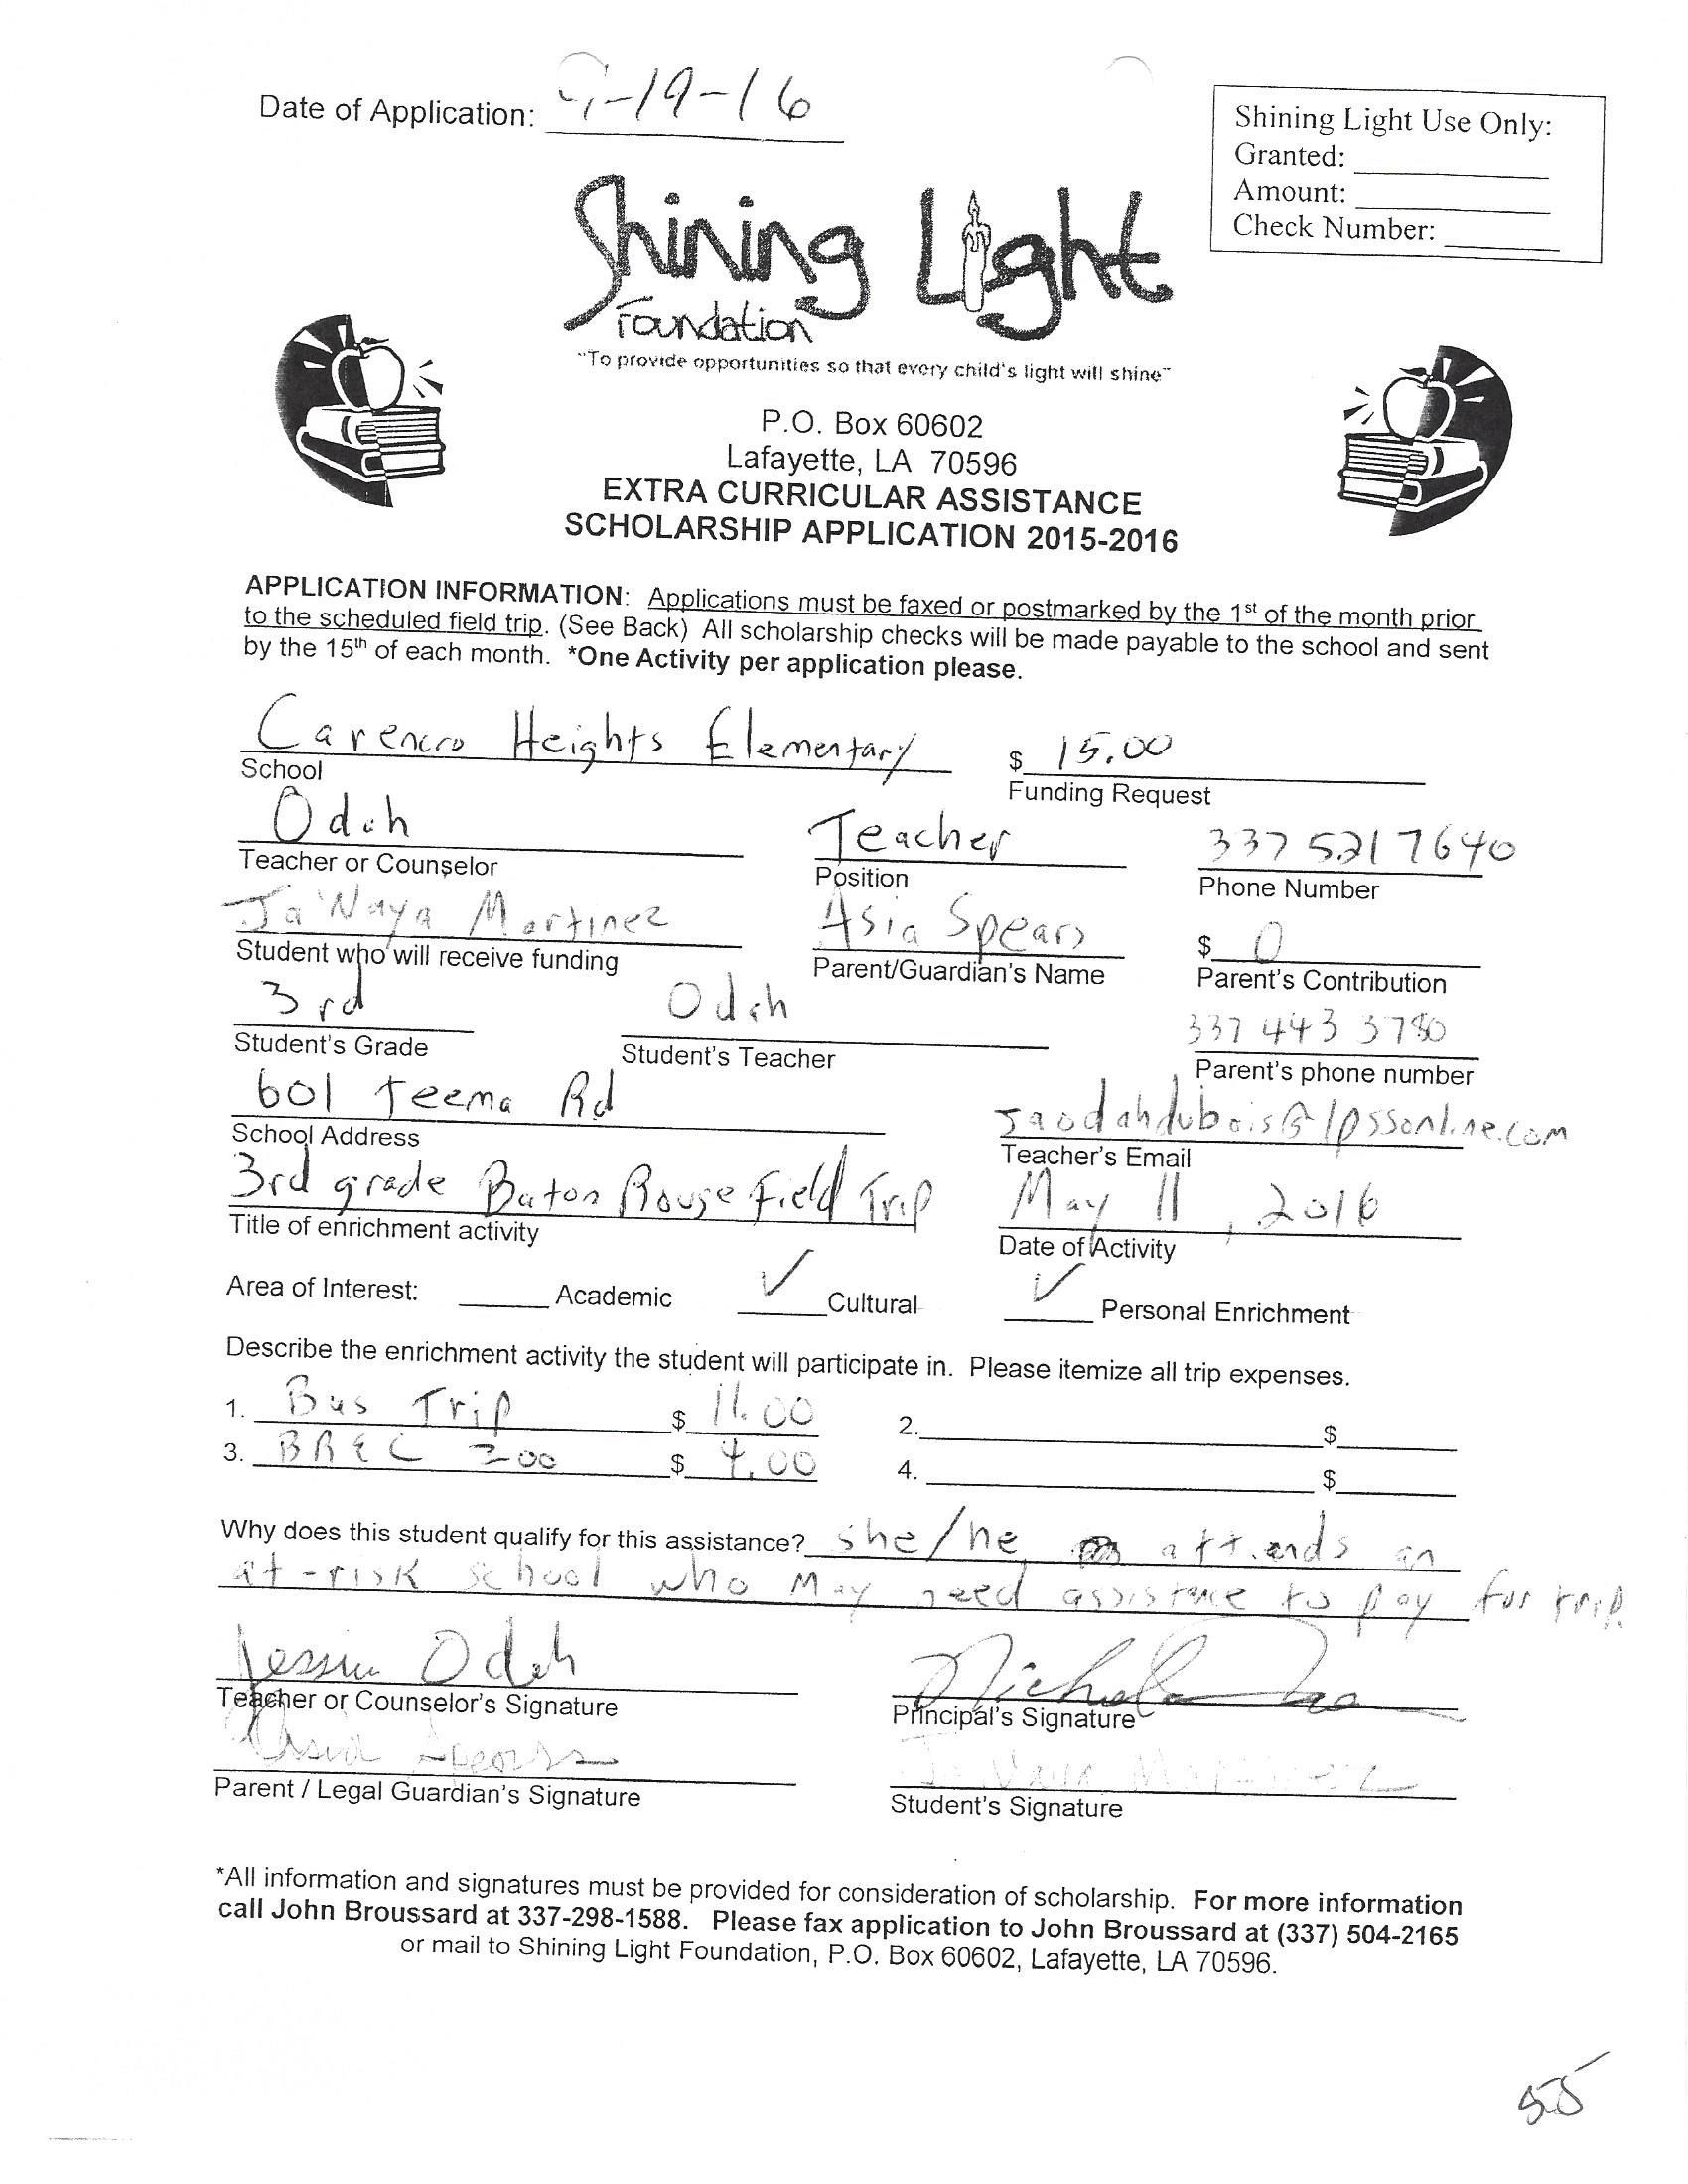 Date of Application: -19-16
Shining Light Use Only:
Granted:
Amount:
Check Number:
Shining Light
Foundation
"To provide opportunities so that every child's light will shine"
P.O. Box 60602
Lafayette, LA 70596
EXTRA CURRICULAR ASSISTANCE
SCHOLARSHIP APPLICATION 2015-2016
APPLICATION INFORMATION: Applications must be faxed or postmarked by the 1st of the month prior
to the scheduled field trip. (See Back) All scholarship checks will be made payable to the school and sent
by the 15th of each month. *One Activity per application please.
Carencro Heights Elementary $ 15.00
School Funding Request
Odah Teacher 337 521 7640
Teacher or Counselor Position Phone Number
Ja'Naya Martinez Asia Spears $ 0
Student who will receive funding Parent/Guardian's Name Parent's Contribution
3rd Odah 337 443 3780
Student's Grade Student's Teacher Parent's phone number
601 Teema Rd jaodahdubois@lpssonline.com
School Address Teacher's Email
3rd grade Baton Rouge Field Trip May 11, 2016
Title of enrichment activity Date of Activity
Area of Interest: Academic ✓ Cultural ✓ Personal Enrichment
Describe the enrichment activity the student will participate in. Please itemize all trip expenses.
1. Bus Trip $ 11.00 2. $
3. BREC Zoo $ 4.00 4. $
Why does this student qualify for this assistance? she/he attends an
at-risk school who may need assistance to pay for trip.
Jessica Odah
Teacher or Counselor's Signature Principal's Signature
Asia Spears Ja'Naya Martinez
Parent / Legal Guardian's Signature Student's Signature
*All information and signatures must be provided for consideration of scholarship. For more information
call John Broussard at 337-298-1588. Please fax application to John Broussard at (337) 504-2165
or mail to Shining Light Foundation, P.O. Box 60602, Lafayette, LA 70596.
55